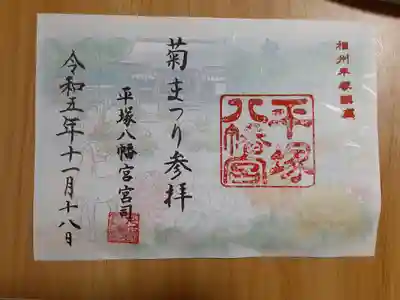 相州平塚鎮座
平塚
八幡宮
菊まつり参拝
平塚八幡宮宮司
令和五年十一月十八日